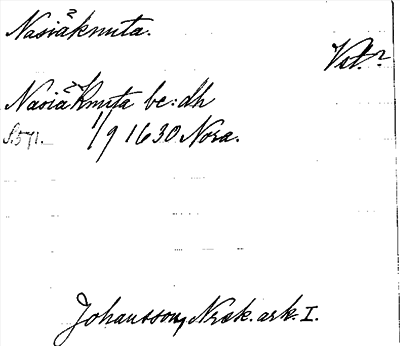 Nasiåknuta.
Vät.?
Nasiå Knuta be:dh
S.571. 1/9 1630 Nora.
Johansson, Noræk. ark. I.